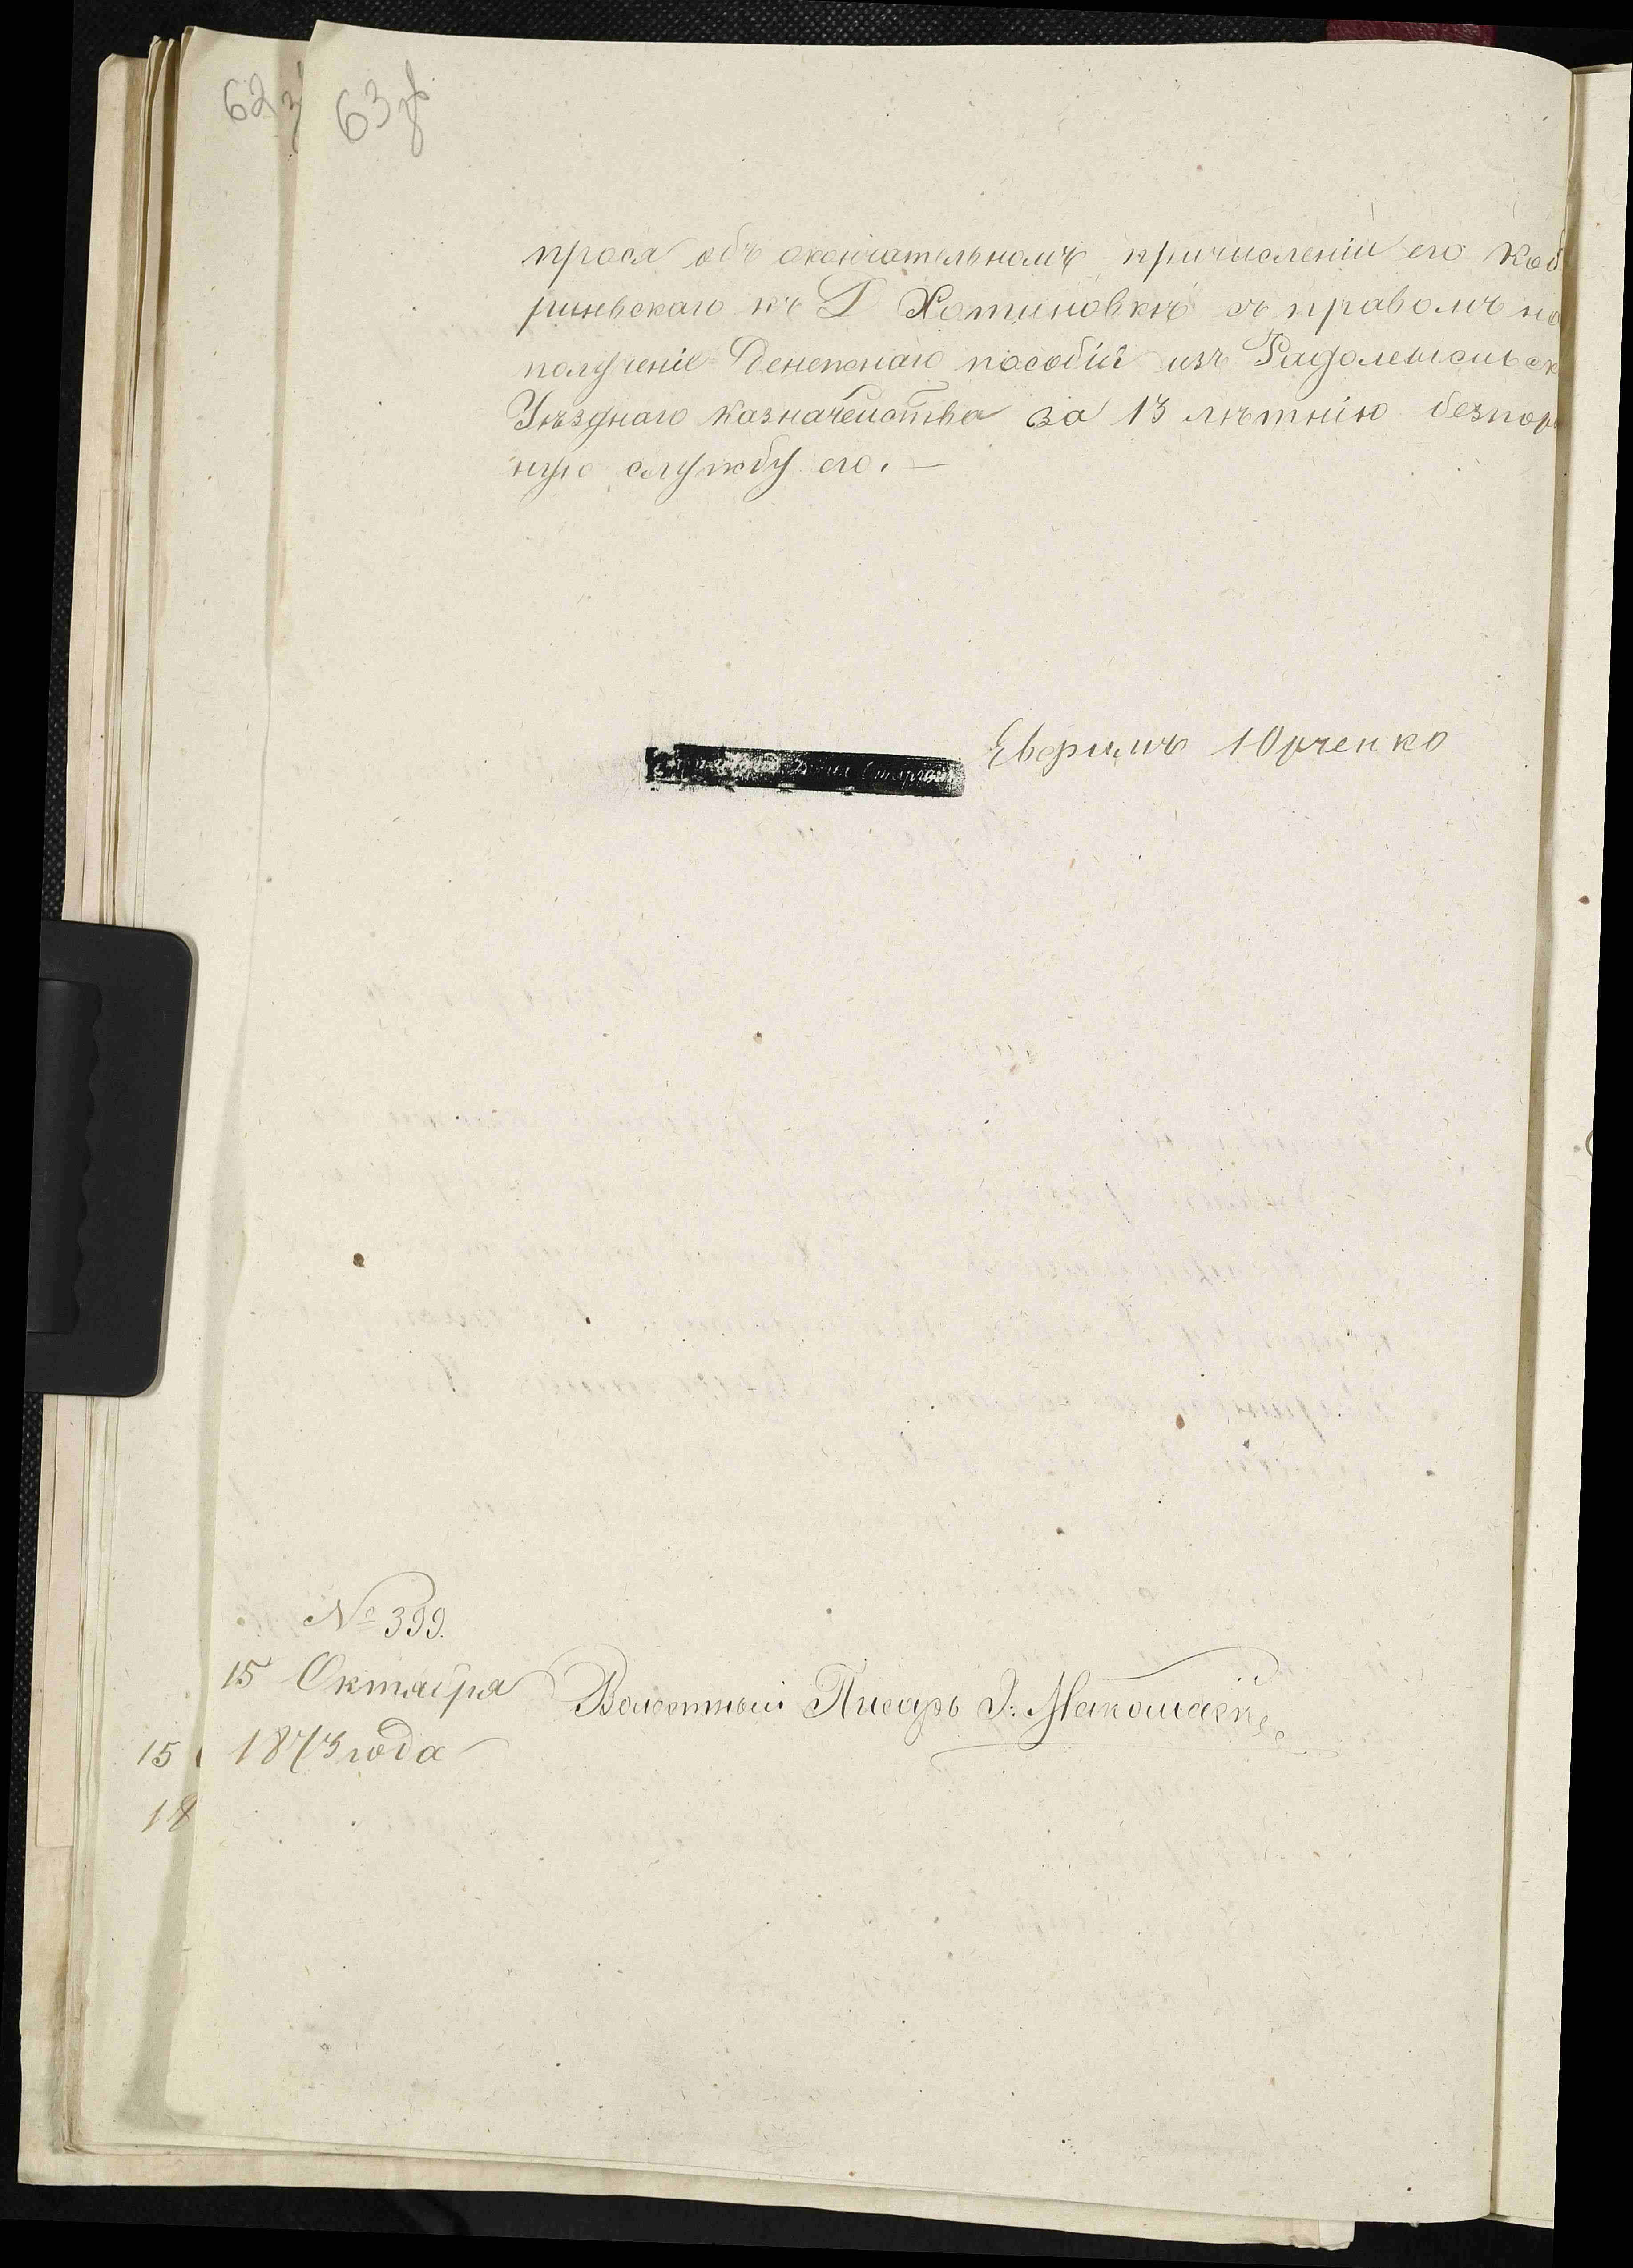 62 з
63 зв
прося объ окончательномъ причисленіи его Коб
риневскаго къ Д Хотиновкѣ съ правомъ на
полученіе Денежнаго пособія изъ Радомысльск
Уѣзднаго Казначейства за 13 лѣтнію безпор
ную службу его. —
Юрченко
№ 399.
15 Октября
Волостный Писарь
1873 года
15
18